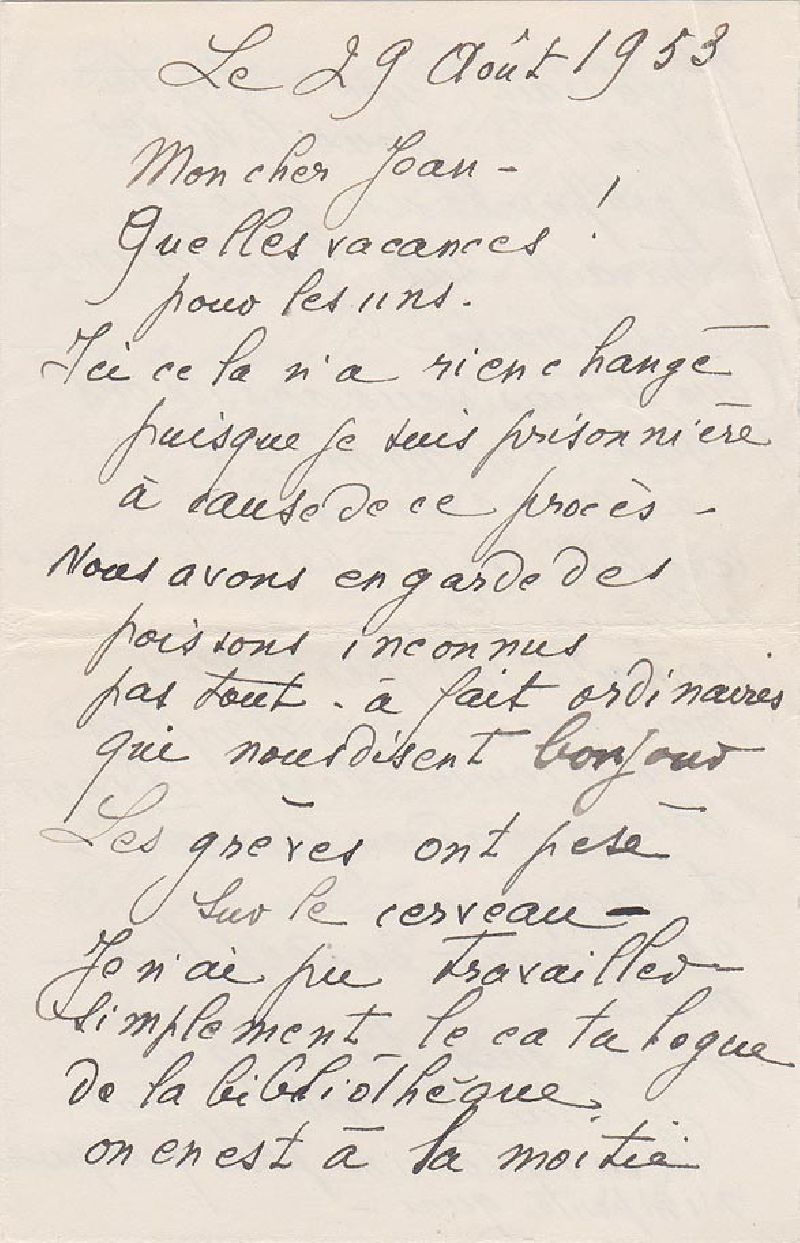 Le 29 Août 1953
Mon cher Jean -
Quelles vacances !
pour les uns.
Ici cela n'a rien changé
puisque je suis prisonnière
à cause de ce procès -
Nous avons en garde des
poissons inconnus
pas tout - à fait ordinaires
qui nous disent bonjour
Les grèves ont pesé
sur le cerveau -
Je n'ai pu travailler
simplement le catalogue
de la bibliothèque
on en est à la moitié